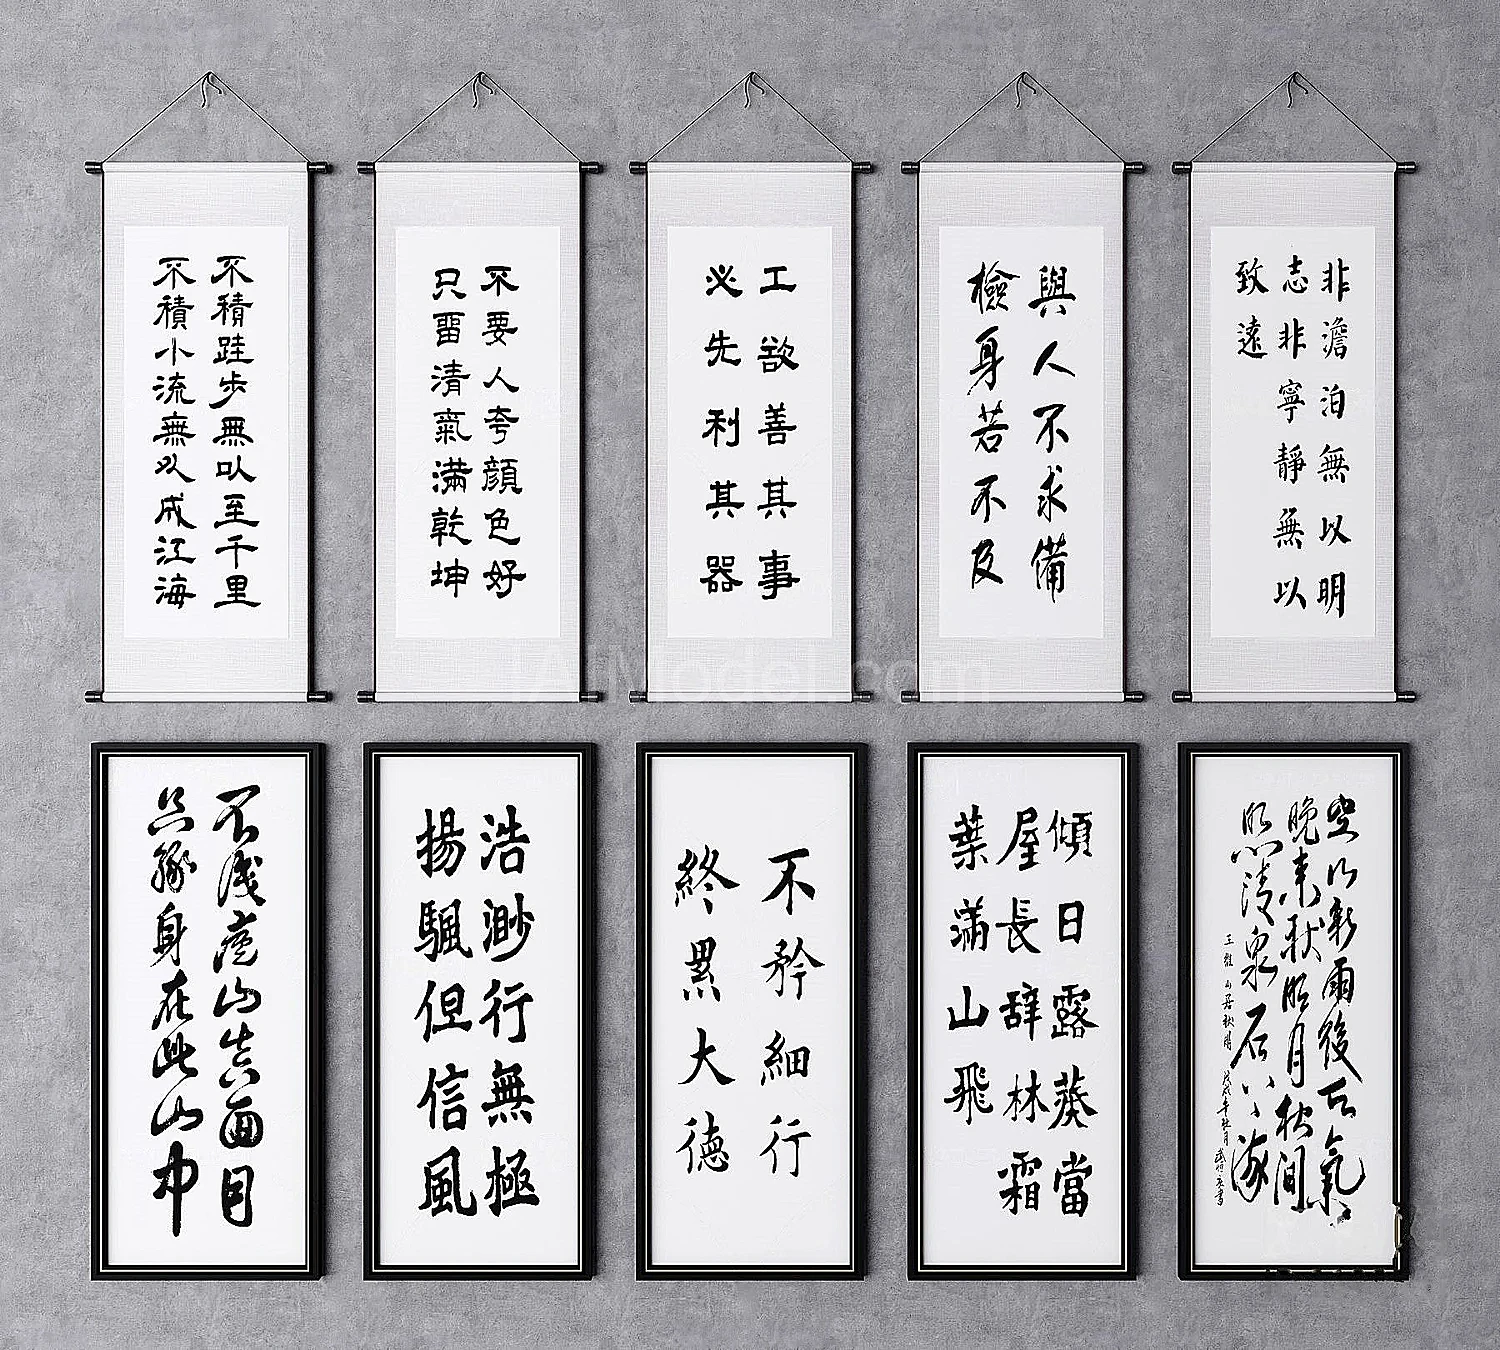 不積跬步無以至千里
不積小流無以成江海
不要人夸顏色好
只留清氣滿乾坤
工欲善其事
必先利其器
與人不求備
檢身若不及
非澹泊無以明
志非寧靜無以
致遠
不識廬山真面目
只緣身在此山中
浩渺行無極
揚颿但信風
不矜細行
終累大德
傾日露葵當
屋長辞林霜
葉滿山飛
空山新雨後天氣
晚来秋明月松間
照清泉石上流
王維山居秋暝